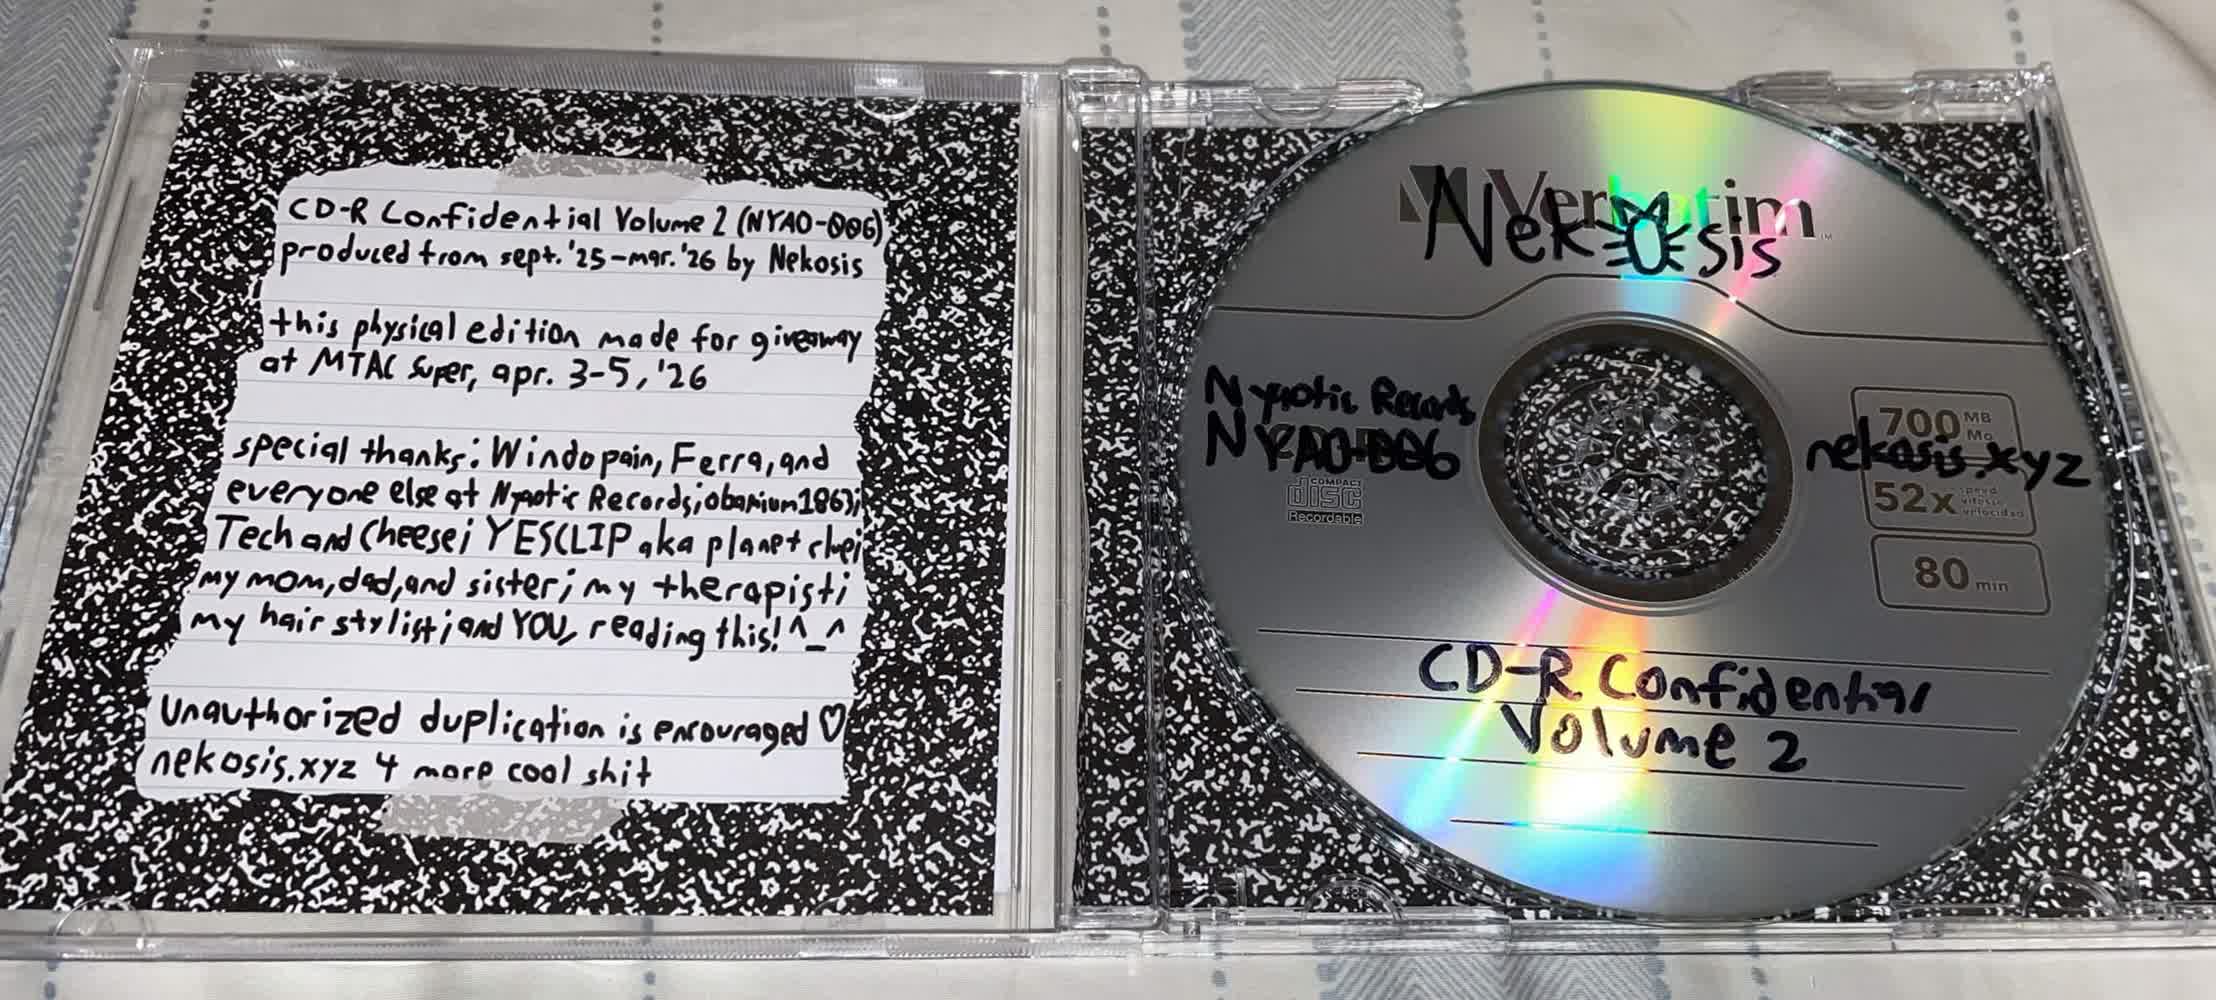 CD-R Confidential Volume 2 (NYAO-006)
produced from sept. '25-mar. '26 by Nekosis
this physical edition made for giveaway
at MTAC Super, apr. 3-5, '26
special thanks: Windopain, Ferra, and
everyone else at Nyaotic Records; obamium1863;
Tech and Cheese; YESCLIP aka planet clue;
my mom, dad, and sister; my therapist;
my hair stylist; and YOU, reading this! ^_^
Unauthorized duplication is encouraged ♡
nekosis.xyz 4 more cool shit
Verbatim
Nekosis
Nyaotic Records
NYAO-006
COMPACT
disc
Recordable
700 MB
Mo
nekosis.xyz
52x speed
vitesse
velocidad
80 min
CD-R Confidential
Volume 2